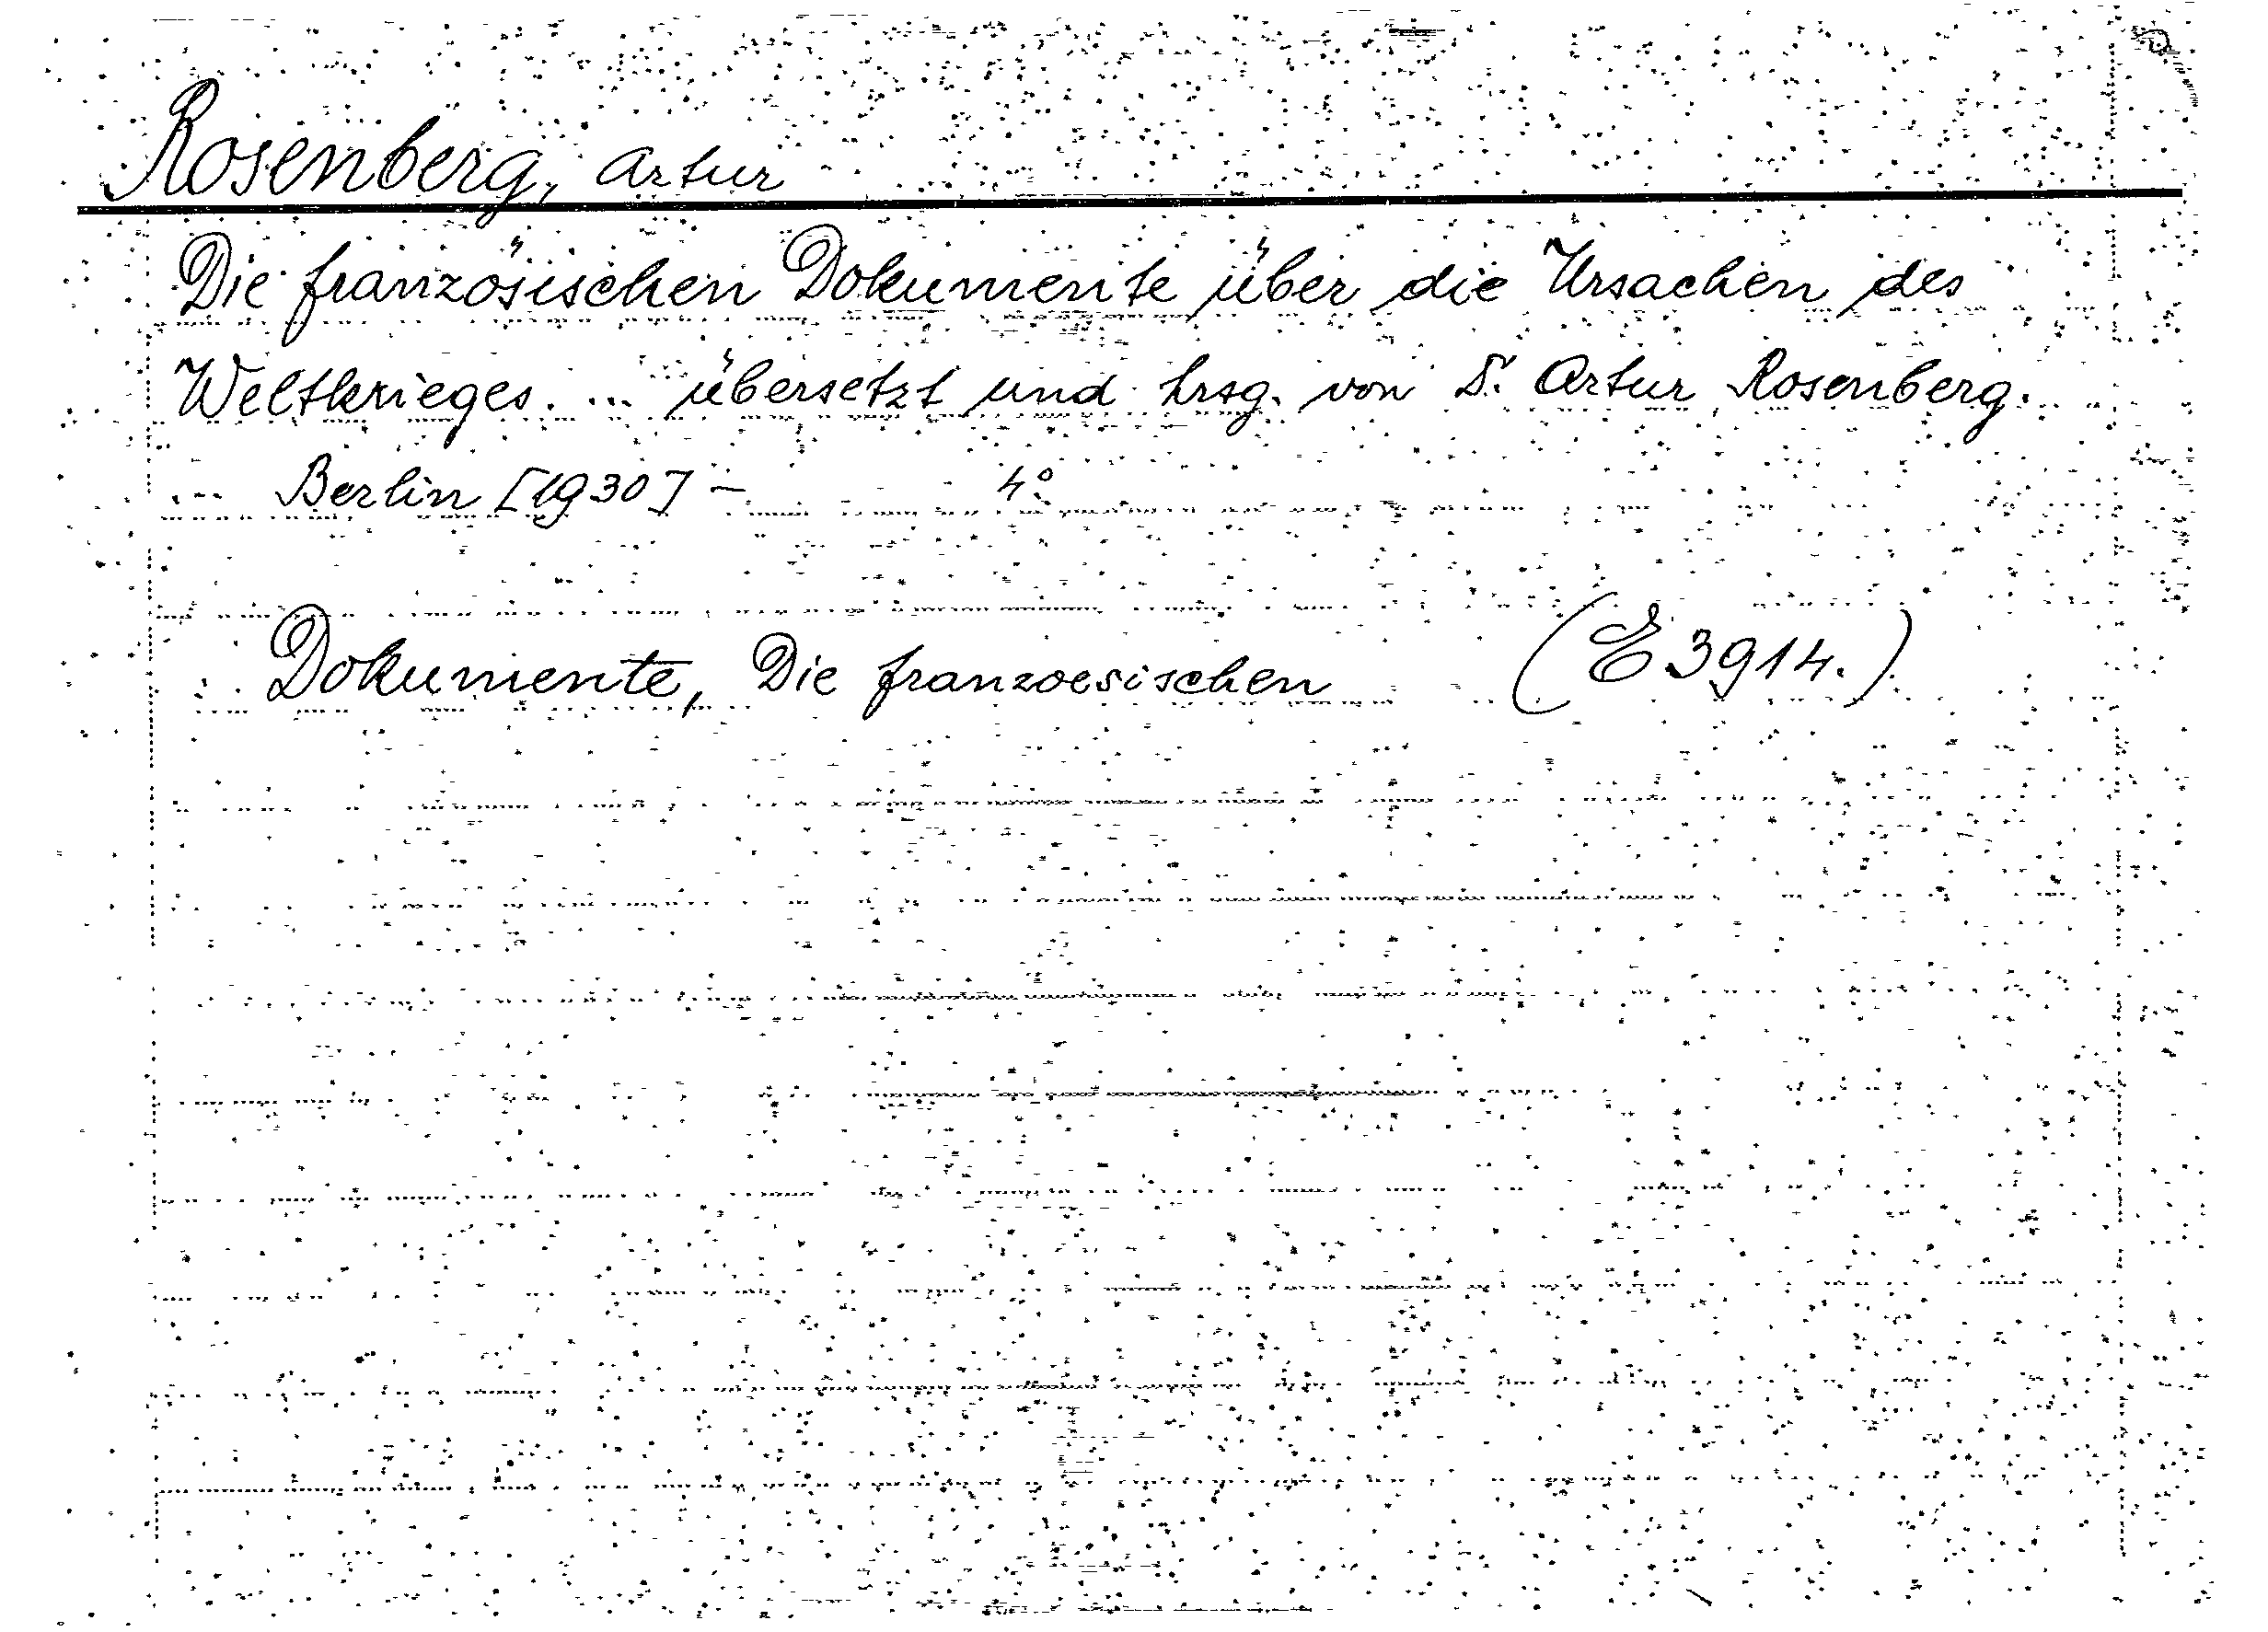 Rosenberg, Artur
Die französischen Dokumente über die Ursachen des
Weltkrieges. ... übersetzt und hrsg. von S. Artur Rosenberg.
... Berlin [1930] – 4°.
Dokumente, Die franzoesischen (E 3914.)